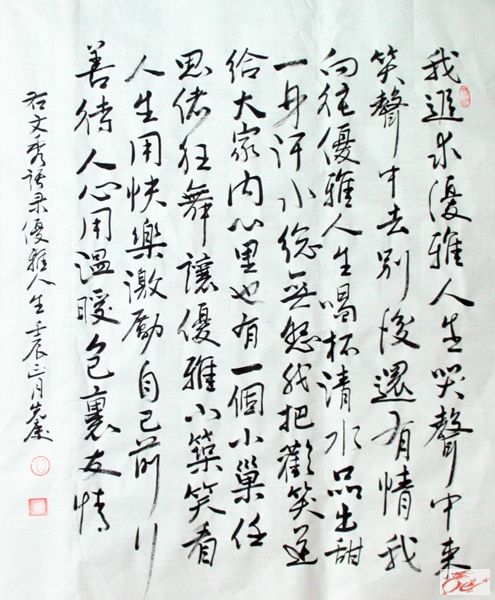 我追求優雅人生哭聲中来
笑聲中去别後還有情我
向往優雅人生喝杯清水品出甜
一身汗水總無怨我把歡笑送
给大家内心里也有一個小巢任
思绪狂舞讓優雅小築笑看
人生用快樂激勵自己前行
善待人心用温暖包裹友情
右文秀语录優雅人生壬辰三月